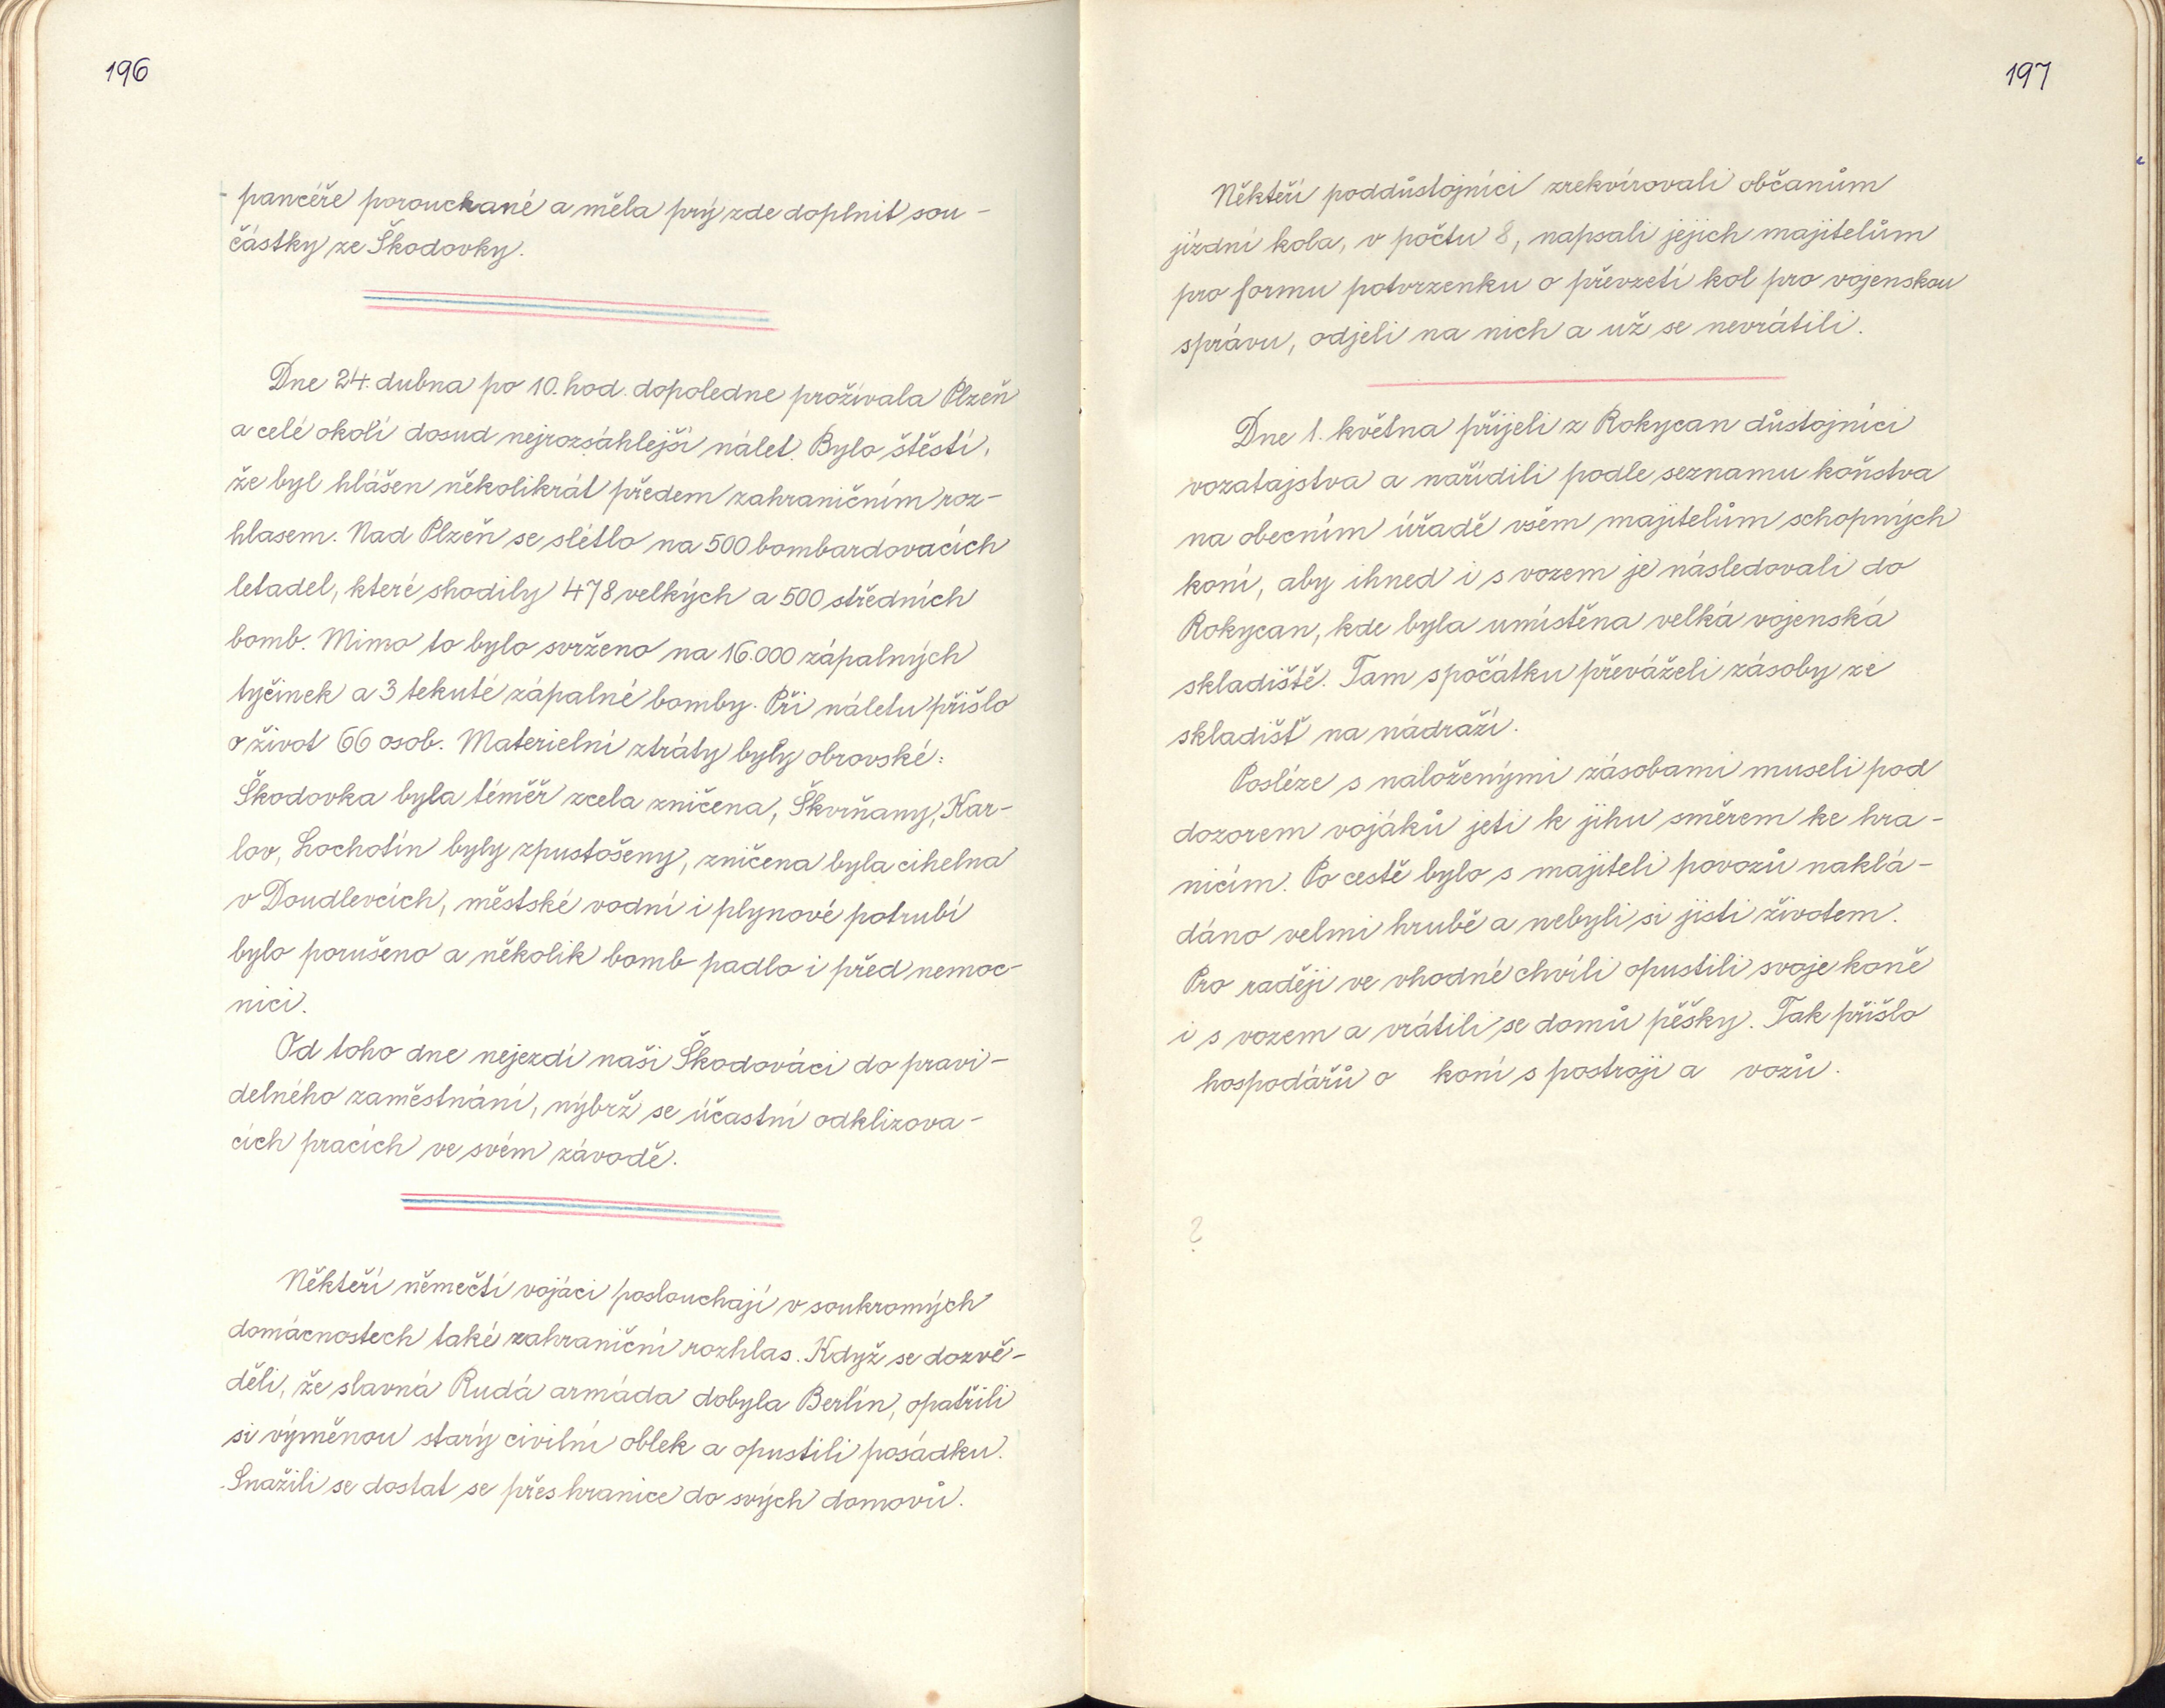 196
pancéře porouchané a měla prý zde doplnit sou-
částky ze Škodovky.
Dne 24. dubna po 10. hod. dopoledne prožívala Plzeň
a celé okolí dosud nejrozsáhlejší nálet. Bylo štěstí,
že byl hlášen několikrát předem zahraničním roz-
hlasem. Nad Plzeň se slétlo na 500 bombardovacích
letadel, které shodily 478 velkých a 500 středních
bomb. Mimo to bylo svrženo na 16.000 zápalných
tyčinek a 3 tekuté zápalné bomby. Při náletu přišlo
o život 66 osob. Materielní ztráty byly obrovské:
Škodovka byla téměř zcela zničena, Škvrňany, Kar-
lov, Lochotín byly zpustošeny, zničena byla cihelna
v Doudlevcích, městské vodní i plynové potrubí
bylo porušeno a několik bomb padlo i před nemoc-
nici.
Od toho dne nejezdí naši Škodováci do pravi-
delného zaměstnání, nýbrž se účastní odklizova-
cích pracích ve svém závodě.
Někteří němečtí vojáci poslouchají v soukromých
domácnostech také zahraniční rozhlas. Když se dozvě-
děli, že slavná Rudá armáda dobyla Berlín, opatřili
si výměnou starý civilní oblek a opustili posádku.
Snažili se dostat se přes hranice do svých domovů.
197
Někteří poddůstojníci zrekvírovali občanům
jízdní kola, v počtu 8, napsali jejich majitelům
pro formu potvrzenku o převzetí kol pro vojenskou
správu, odjeli na nich a už se nevrátili.
Dne 1. května přijeli z Rokycan důstojníci
vozatajstva a nařídili podle seznamu koňstva
na obecním úřadě všem majitelům schopných
koní, aby ihned i s vozem je následovali do
Rokycan, kde byla umístěna velká vojenská
skladiště. Tam spočátku převáželi zásoby ze
skladišť na nádraží.
Posléze s naloženými zásobami museli pod
dozorem vojáků jeti k jihu směrem ke hra-
nicím. Po cestě bylo s majiteli povozů naklá-
dáno velmi hrubě a nebyli si jisti životem.
Pro raději ve vhodné chvíli opustili svoje koně
i s vozem a vrátili se domů pěšky. Tak přišlo
hospodářů o koní s postroji a vozů.
?